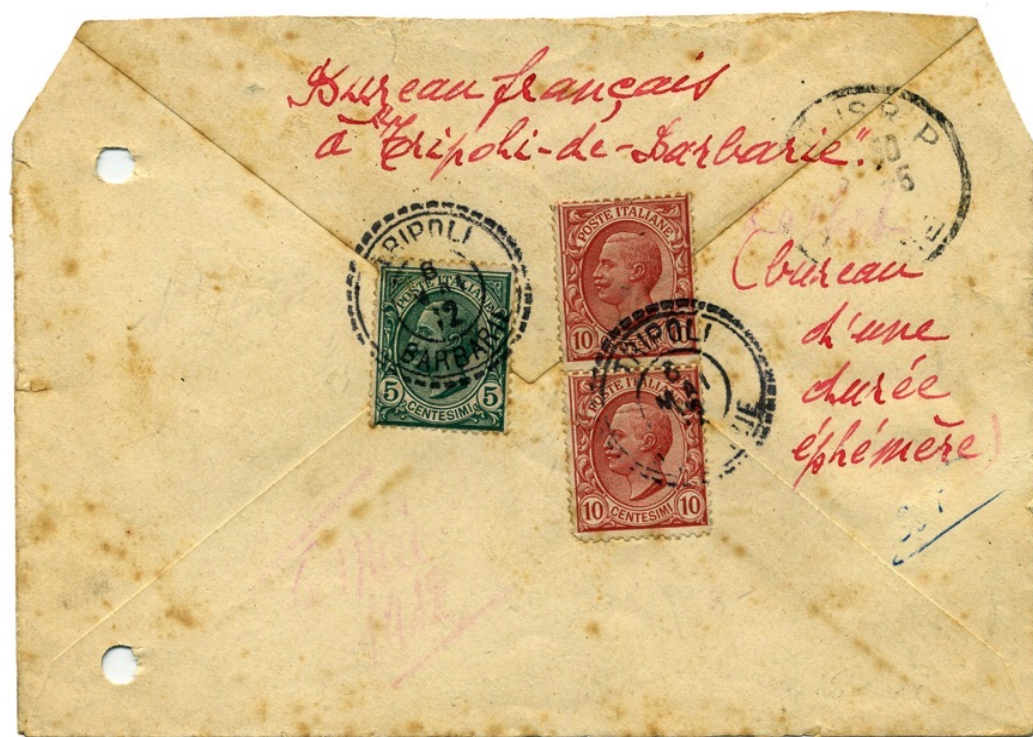 Bureau français
à "Tripoli-de-Barbarie".
R. P
(bureau
d'une
durée
éphémère)
TRIPOLI
6
12
BARBARIE
POSTE ITALIANE
5 CENTESIMI 5
POSTE ITALIANE
10
TRIPOLI
POSTE ITALIANE
10 CENTESIMI 10
Tripoli
1912